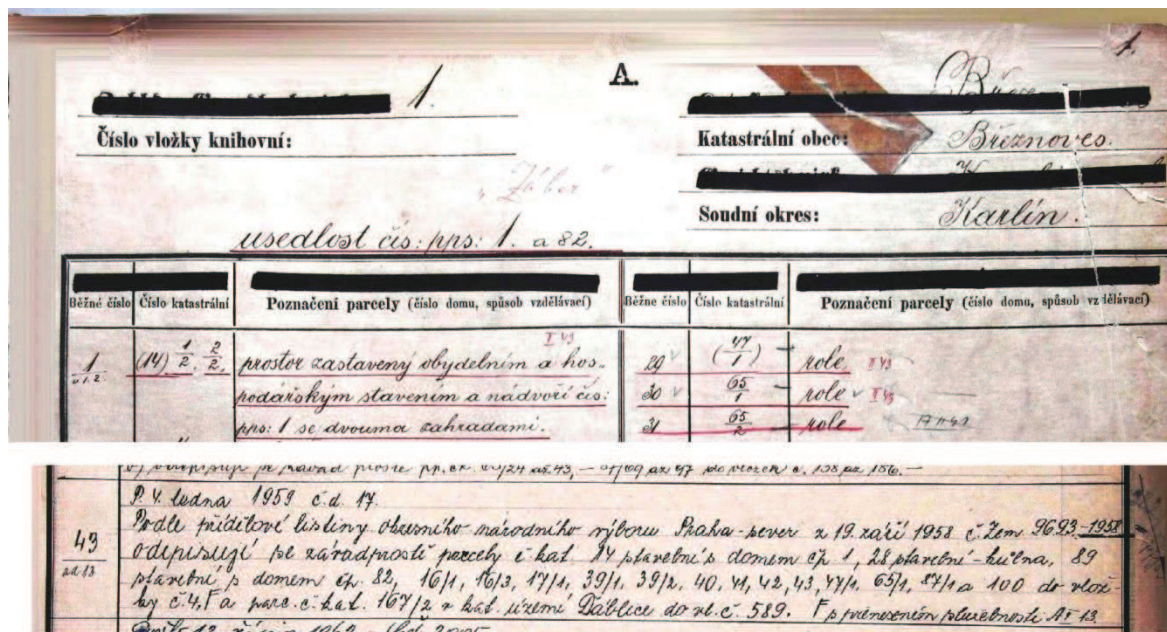 1.
A.
1.
Číslo vložky knihovní:
Katastrální obec: Březnoves.
"Zábor"
Soudní okres: Karlín.
usedlost čís: pps: 1. a 82.
Běžné číslo Číslo katastrální Poznačení parcely (číslo domu, spůsob vzdělávací) Běžne číslo Číslo katastrální Poznačení parcely (číslo domu, spůsob vzdělávací)
1 (14) 1/2. 2/2. prostor zastavený obydelním a hos- 29 (47/1) role
podářským stavením a nádvoří čís: 30 65/1 role
pps: 1 se dvouma zahradami. 31 65/2 role
P. 4. ledna 1959 č.d. 17.
Podle přídělové listiny okresního národního výboru Praha-sever z 19. září 1958 č. Zem 9693-1958
49 odepisují se závadprosti parcely č kat. 14 stavební s domem čp 1, 28 stavební - kůlna, 89
stavební s domem čp. 82, 16/1, 16/3, 17/1, 39/1, 39/2, 40, 41, 42, 43, 47/1, 65/1, 87/1 a 100 do vlož-
ky č. 4, a parc. č. kat. 167/2 v kat. území Ďáblice do vl. č. 589. s přenesením služebnosti